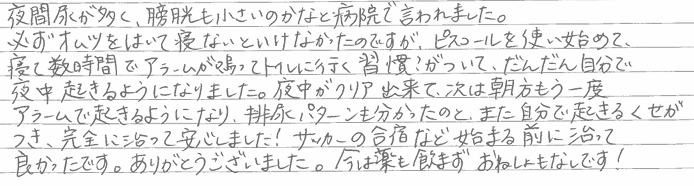 夜間尿が多く、膀胱も小さいのかなと病院で言われました。
必ずオムツをはいて寝ないといけなかったのですが、ピスコールを使い始めて、
寝て数時間でアラームが鳴ってトイレに行く習慣?がついて、だんだん自分で
夜中起きるようになりました。夜中がクリア出来て、次は朝方もう一度
アラームで起きるようになり、排尿パターンも分かったのと、また自分で起きるくせが
つき、完全に治って安心しました!サッカーの合宿など始まる前に治って
良かったです。ありがとうございました。今は薬も飲まずおねしょもなしです!